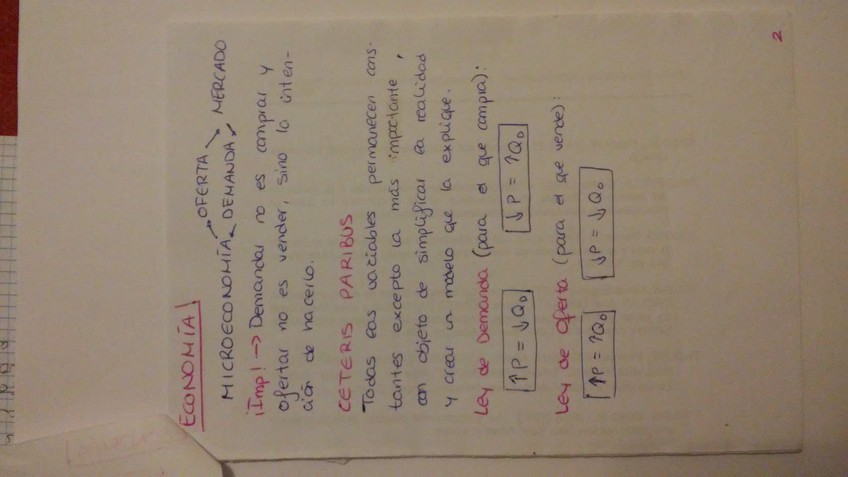 ECONOMÍA!
MICROECONOMÍA OFERTA DEMANDA MERCADO
¡Imp! → Demandar no es comprar y
ofertar no es vender, sino la inten-
ción de hacerlo.
CETERIS PARIBUS
Todas las variables permanecen cons-
tantes excepto la más importante,
con objeto de simplificar la realidad
y crear un modelo que la explique.
Ley de Demanda (para el que compra):
↑P = ↓Q₀ ↓P = ↑Q₀
Ley de oferta (para el que vende):
↑P = ↑Q₀ ↓P = ↓Q₀
2